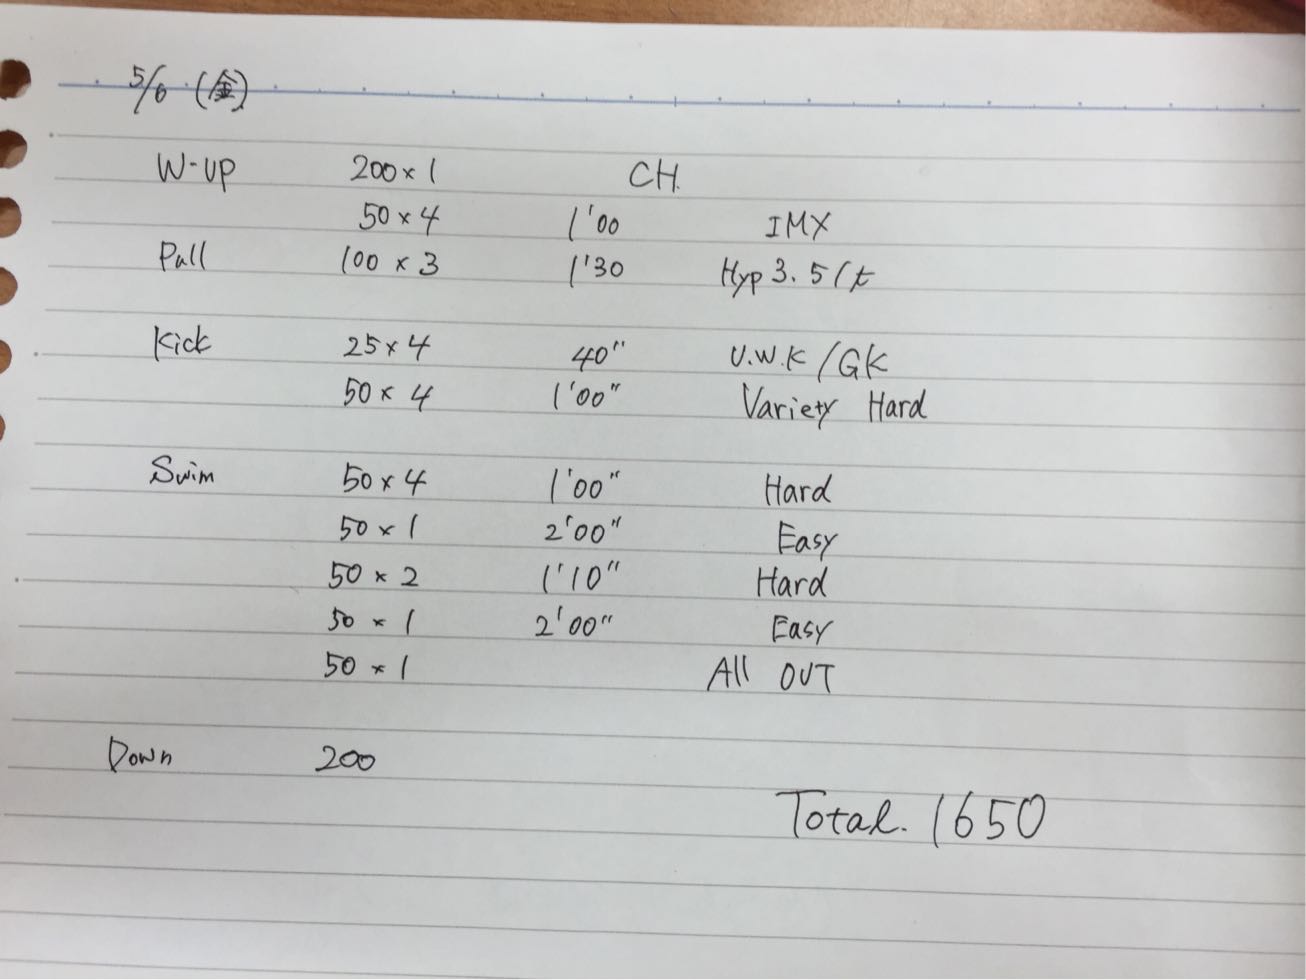 5/6 (金)
W-up 200×1 CH.
50×4 1'00 IMX
Pull 100×3 1'30 Hyp 3.5/t
Kick 25×4 40" U.W.K/GK
50×4 1'00" Variety Hard
Swim 50×4 1'00" Hard
50×1 2'00" Easy
50×2 1'10" Hard
50×1 2'00" Easy
50×1 All OUT
Down 200
Total. 1650